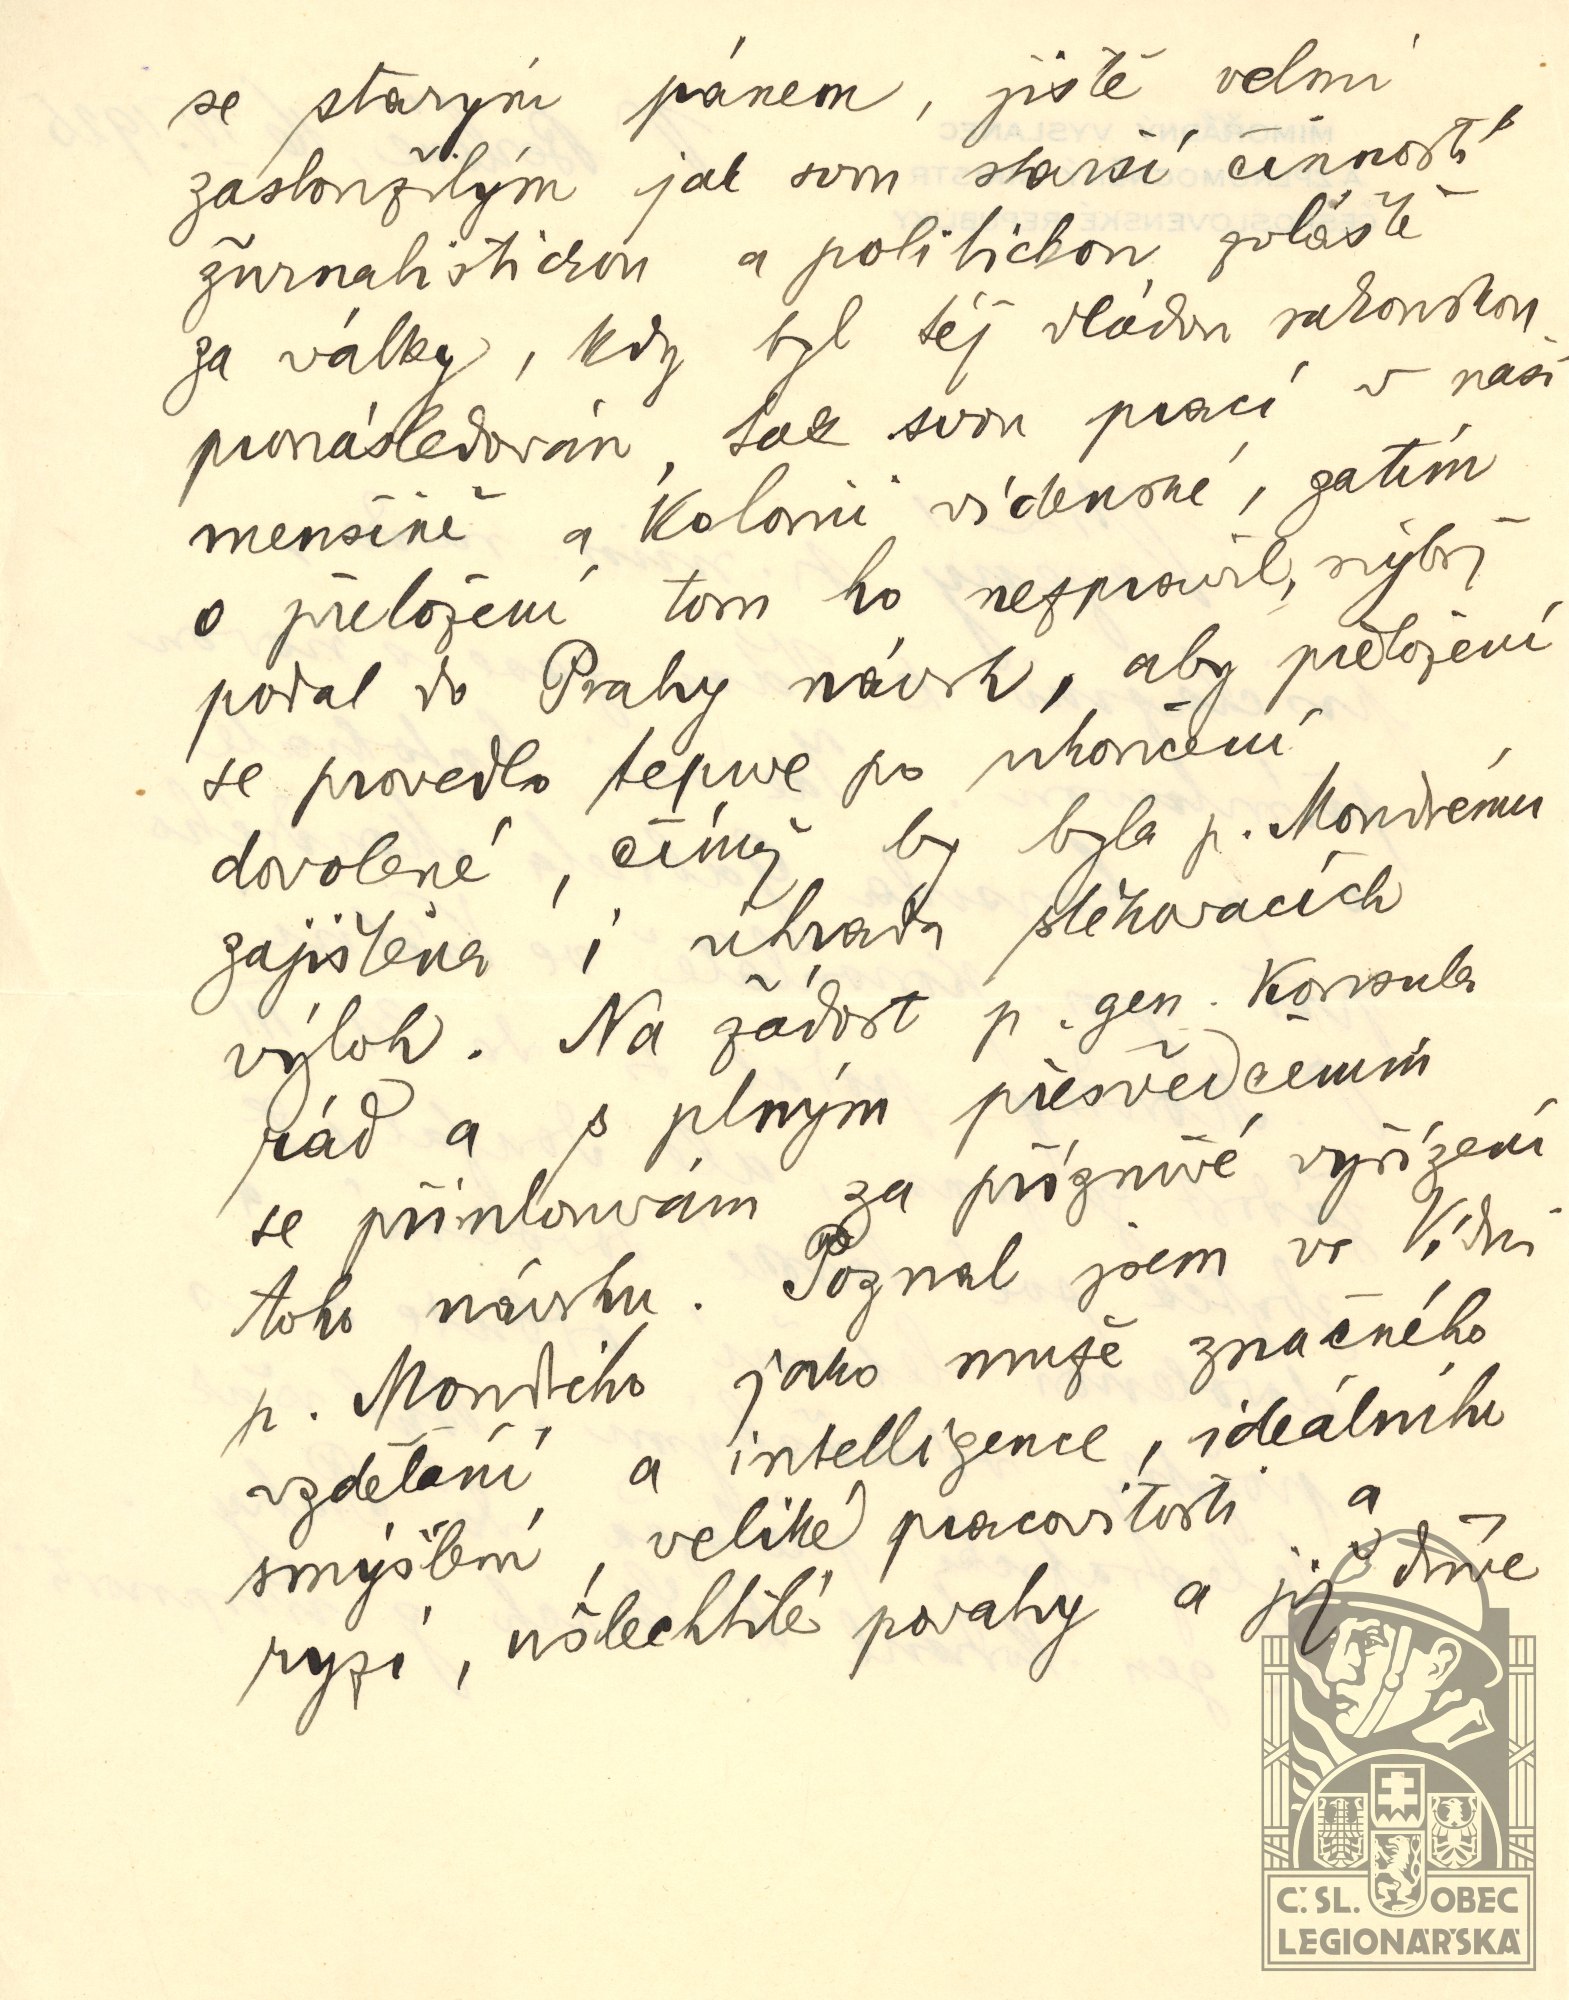 se starým pánem, jistě velmi
zasloužilým jak svou starší činností
žurnalistickou a politickou zvláště
za války, kdy byl též vládou rakouskou
pronásledován, tak svou prací v naší
menšině a kolonii vídeňské, zatím
o přeložení tom ho nezpravil, nýbrž
podal do Prahy návrh, aby přeložení
se provedlo teprve po ukončení
dovolené, čímž by byla p. Moudrému
zajištěna i úhrada stěhovacích
výloh. Na žádost p. gen. konsula
rád a s plným přesvědčením
se přimlouvám za příznivé vyřízení
toho návrhu. Poznal jsem ve Vídni
p. Moudrého jako muže značného
vzdělání a intelligence, ideálního
smýšlení, veliké pracovitosti a
ryzí, ušlechtilé povahy a již dříve
Č. SL. OBEC
LEGIONÁŘSKÁ